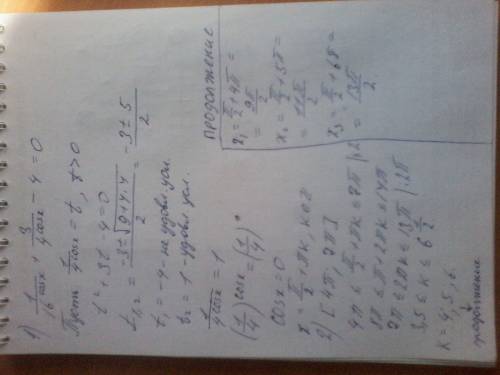 1) 1/16^cosx + 3/4^cosx - 4 = 0
Пусть 1/4^cosx = t, t>0
t² + 3t - 4 = 0
t₁,₂ = (-3 ± √(9+4·4))/2 = (-3 ± 5)/2
t₁ = -4 - не удовл. усл.
t₂ = 1 - удовл. усл.
1/4^cosx = 1
(1/4)^cosx = (1/4)^0
cosx = 0
x = π/2 + πk, k∈Z
2) [4π; 7π]
4π ≤ π/2 + πk ≤ 7π |·2
8π ≤ π + 2πk ≤ 14π
7π ≤ 2πk ≤ 13π |:2π
3,5 ≤ k ≤ 6 1/2
k = 4, 5, 6.
продолжение
продолжение
x₁ = π/2 + 4π =
= 9π/2
x₂ = π/2 + 5π =
= 11π/2
x₃ = π/2 + 6π =
= 13π/2